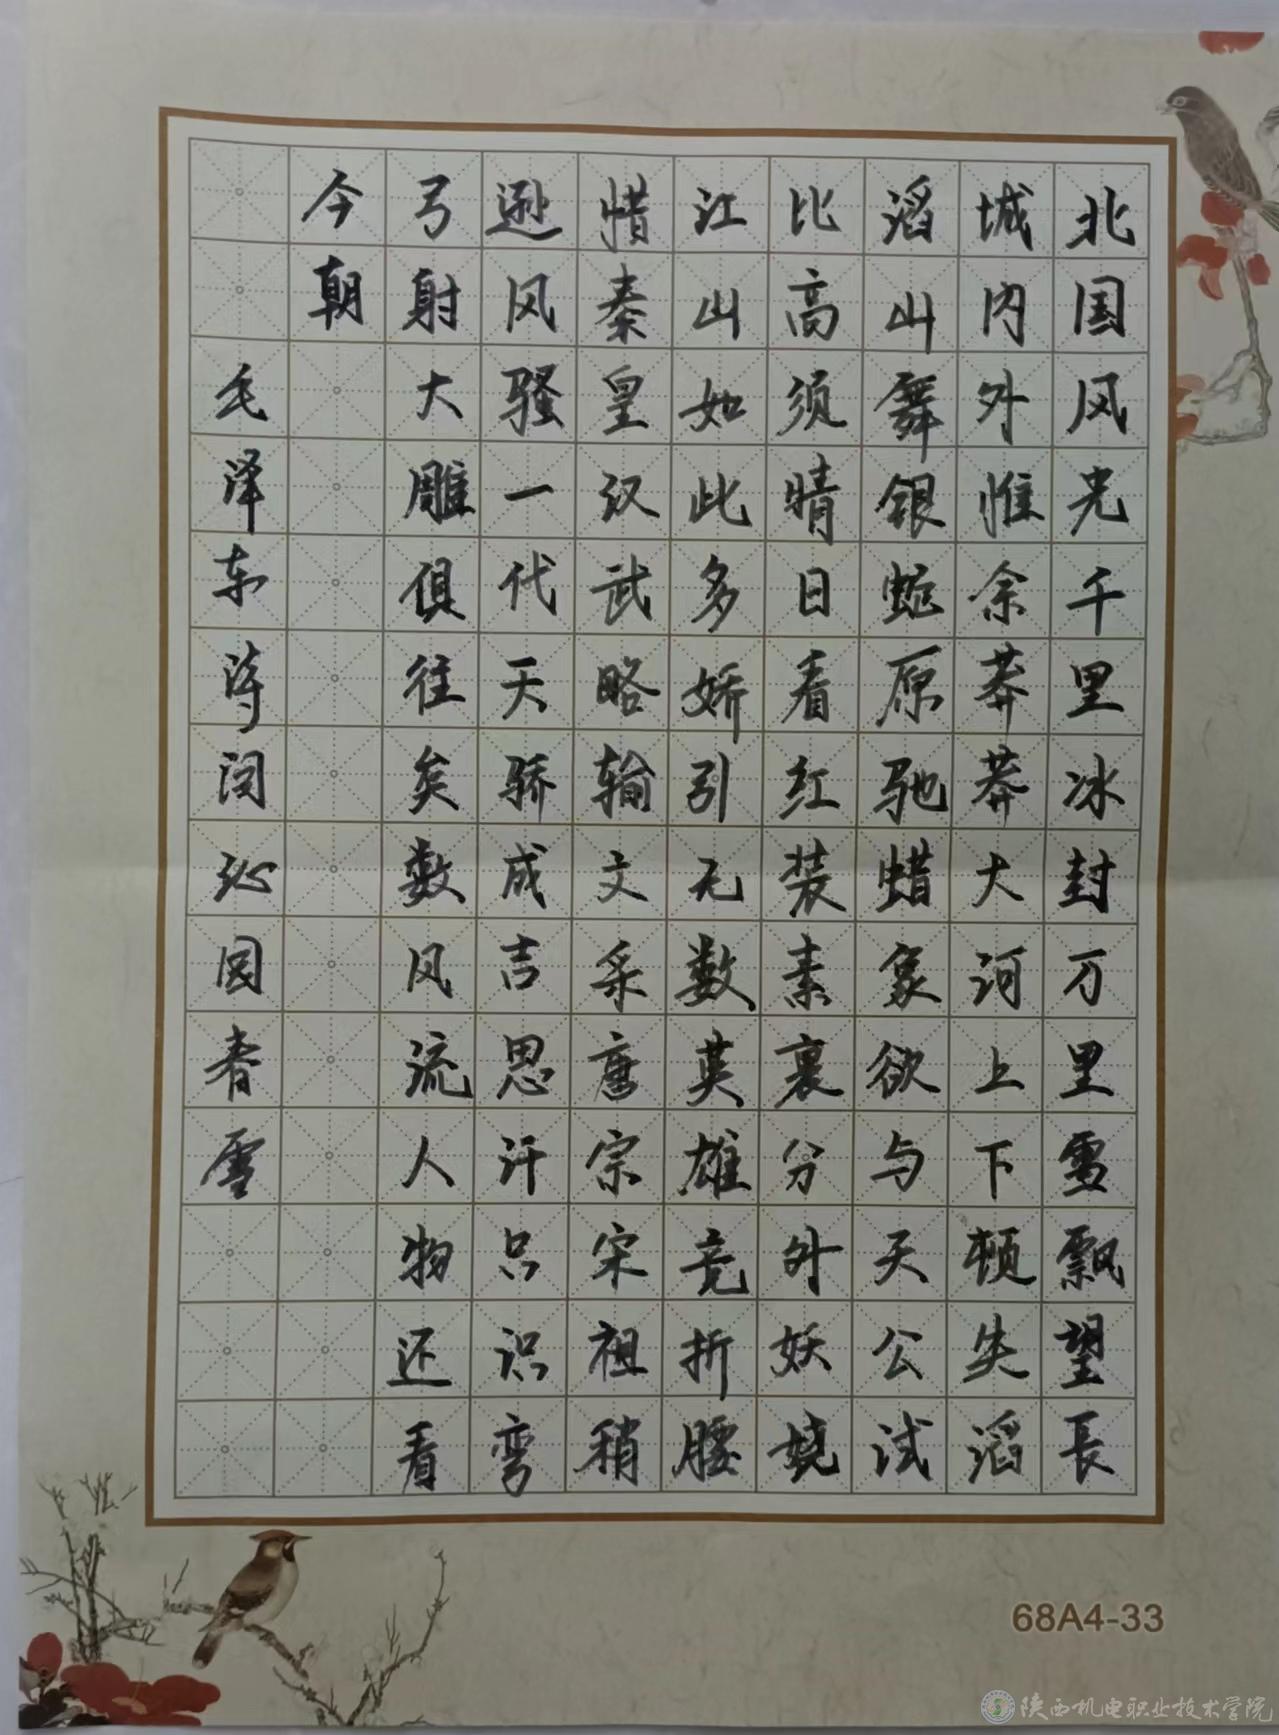 北国风光千里冰封万里雪飘望長
城内外惟余莽莽大河上下顿失滔
滔山舞银蛇原驰蜡象欲与天公试
比高须晴日看红装素裹分外妖娆
江山如此多娇引无数英雄竞折腰
惜秦皇汉武略输文采唐宗宋祖稍
逊风骚一代天骄成吉思汗只识弯
弓射大雕俱往矣数风流人物还看
今朝
毛泽东诗词沁园春雪
68A4-33
陕西机电职业技术学院